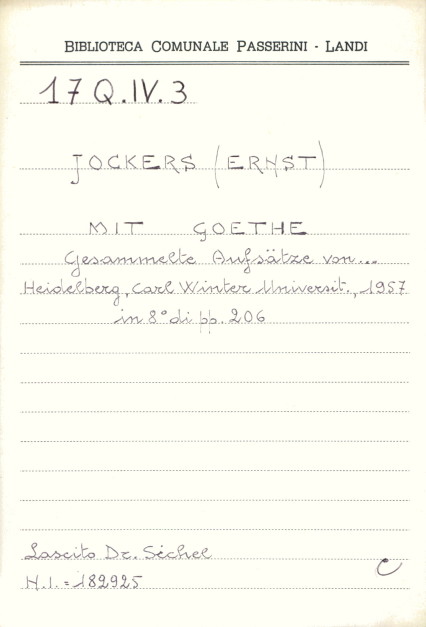 BIBLIOTECA COMUNALE PASSERINI - LANDI
17 Q.IV.3
JOCKERS (ERNST)
MIT GOETHE
Gesammelte Aufsätze von...
Heidelberg, Carl Winter Universit., 1957
in 8° di pp. 206
Lascito Dr. Séchel
N.I. = 182925
C